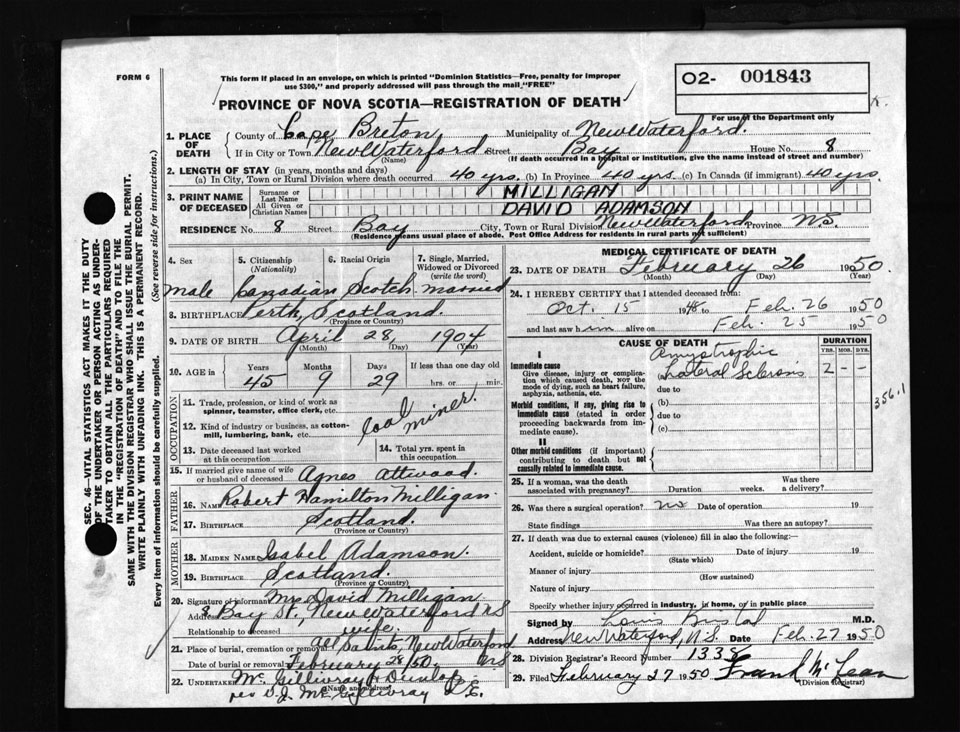 FORM 6
This form if placed in an envelope, on which is printed "Dominion Statistics—Free, penalty for improper
use $300," and properly addressed will pass through the mail "FREE"
PROVINCE OF NOVA SCOTIA—REGISTRATION OF DEATH
O2- 001843
For use of the Department only
1. PLACE OF DEATH
County of Cape Breton Municipality of New Waterford.
If in City or Town New Waterford Street Bay House No. 8
(Name) (If death occurred in a hospital or institution, give the name instead of street and number)
2. LENGTH OF STAY (in years, months and days)
(a) In City, Town or Rural Division where death occurred 40 yrs. (b) In Province 40 yrs. (c) In Canada (if immigrant) 40 yrs.
3. PRINT NAME OF DECEASED
Surname or Last Name MILLIGAN
All Given or Christian Names DAVID ADAMSON
RESIDENCE No. 8 Street Bay City, Town or Rural Division New Waterford Province N.S.
(Residence means usual place of abode. Post Office Address for residents in rural parts not sufficient)
4. Sex
5. Citizenship (Nationality)
6. Racial Origin
7. Single, Married, Widowed or Divorced (write the word)
male Canadian Scotch married
8. BIRTHPLACE Perth, Scotland.
(Province or Country)
9. DATE OF BIRTH April 28, 1904
(Month) (Day) (Year)
10. AGE in Years Months Days If less than one day old
45 9 29 hrs. or min.
OCCUPATION
11. Trade, profession, or kind of work as spinner, teamster, office clerk, etc.
12. Kind of industry or business, as cotton-mill, lumbering, bank, etc.
coal miner.
13. Date deceased last worked at this occupation
14. Total yrs. spent in this occupation
15. If married give name of wife or husband of deceased Agnes Attwood.
FATHER
16. NAME Robert Hamilton Milligan.
17. BIRTHPLACE Scotland.
(Province or Country)
MOTHER
18. MAIDEN NAME Isabel Adamson.
19. BIRTHPLACE Scotland.
(Province or Country)
20. Signature of informant Mrs David Milligan
Address 8 Bay St., New Waterford NS
Relationship to deceased wife.
21. Place of burial, cremation or removal All Saints, New Waterford
Date of burial or removal February 28/50. N.S
22. UNDERTAKER Mc Gillivray & Dunlop
(Name and address)
per D.J. McGillivray
MEDICAL CERTIFICATE OF DEATH
23. DATE OF DEATH February 26 1950.
(Month) (Day) (Year)
24. I HEREBY CERTIFY that I attended deceased from:
Oct. 15 1948 to Feb. 26 1950
and last saw him alive on Feb. 25 1950
CAUSE OF DEATH
DURATION
YRS. MOS. DYS.
I
Immediate cause
Give disease, injury or complication which caused death, nor the mode of dying, such as heart failure, asphyxia, asthenia, etc.
Amystrophic
(a) Lateral Sclerosis 2 - -
due to
356.1
Morbid conditions, if any, giving rise to immediate cause (stated in order proceeding backwards from immediate cause).
(b)
due to
(c)
II
Other morbid conditions (if important) contributing to death but not causally related to immediate cause.
25. If a woman, was the death associated with pregnancy? Duration weeks. Was there a delivery?
26. Was there a surgical operation? no Date of operation 19
State findings Was there an autopsy?
27. If death was due to external causes (violence) fill in also the following:
Accident, suicide or homicide? Date of injury 19
(State which)
Manner of injury
(How sustained)
Nature of injury
Specify whether injury occurred in industry, in home, or in public place
Signed by M.D.
Address New Waterford, N.S. Date Feb. 27 1950
28. Division Registrar's Record Number 1338
29. Filed February 27 1950 Frank McLean
(Division Registrar)
SEC. 46 VITAL STATISTICS ACT MAKES IT THE DUTY
OF THE UNDERTAKER OR PERSON ACTING AS UNDER-
TAKER TO OBTAIN ALL THE PARTICULARS REQUIRED
IN THE "REGISTRATION OF DEATH" AND TO FILE THE
SAME WITH THE DIVISION REGISTRAR WHO SHALL ISSUE THE BURIAL PERMIT.
WRITE PLAINLY WITH UNFADING INK. THIS IS A PERMANENT RECORD.
Every item of information should be carefully supplied. (See reverse side for instructions.)